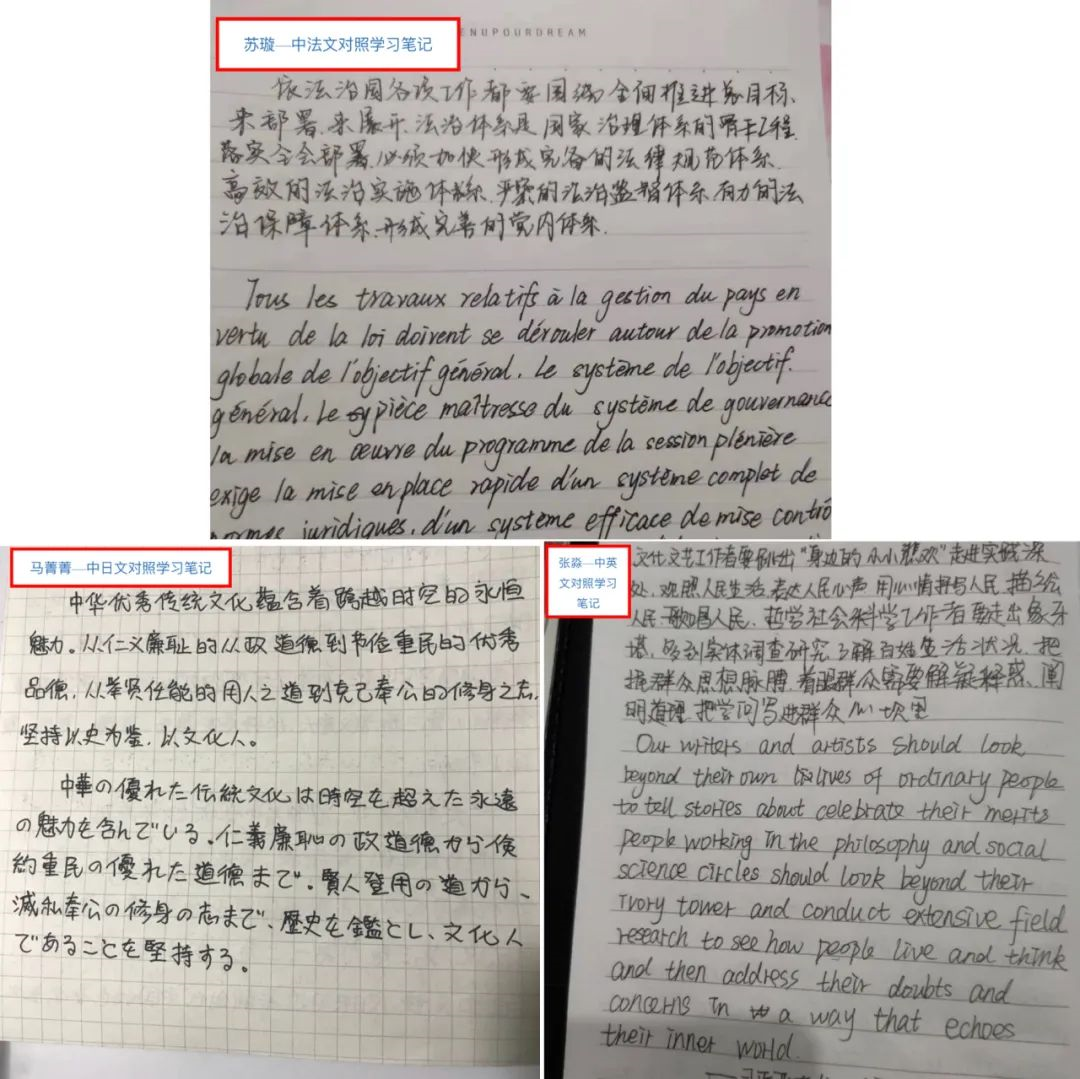 苏璇—中法文对照学习笔记
ENUPOURDREAM
依法治国各项工作都要围绕全面推进总目标、
来部署、来展开、法治体系是国家治理体系的骨干工程.
落实全会部署、必须加快形成完备的法律规范体系、
高效的法治实施体系、严密的法治监督体系、有力的法
治保障体系、形成完善的党内体系.
Tous les travaux relatifs à la gestion du pays en
vertu de la loi doivent se dérouler autour de la promotion
globale de l'objectif général. Le système de l'objectif.
général. Le pièce maîtresse du système de gouvernance
la mise en œuvre du programme de la session plénière
exige la mise en place rapide d'un système complet de
normes juridiques. d'un système efficace de mise contrô
马菁菁—中日文对照学习笔记
中华优秀传统文化蕴含着跨越时空的永恒
魅力。从仁义廉耻的从政道德到节俭重民的优秀
品德，从举贤任能的用人之道到克己奉公的修身之志，
坚持以史为鉴，以文化人。
中華の優れた伝統文化は時空を超えた永遠
の魅力を含んでいる。仁義廉恥の政道徳から倹
約重民の優れた道徳まで。賢人登用の道から、
滅私奉公の修身の志まで、歴史を鑑とし、文化人
であることを堅持する。
张淼—中英
文对照学习
笔记
文化文艺工作者要跳出“身边的小小悲欢”走进实践深
处，观照人民生活，表达人民心声 用心用情抒写人民、描绘
人民、歌唱人民。哲学社会科学工作者要走出象牙
塔，多到实体调查研究 了解百姓生活状况、把
握群众思想脉膊，着眼群众需要解疑释惑、阐
明道理 把学问写进群众心坎里
Our writers and artists should look
beyond their own lives of ordinary people
to tell stories about celebrate their merits
people working in the philosophy and social
science circles should look beyond their
ivory tower and conduct extensive field
research to see how people live and think
and then address their doubts and
concerns in a way that echoes
their inner world.